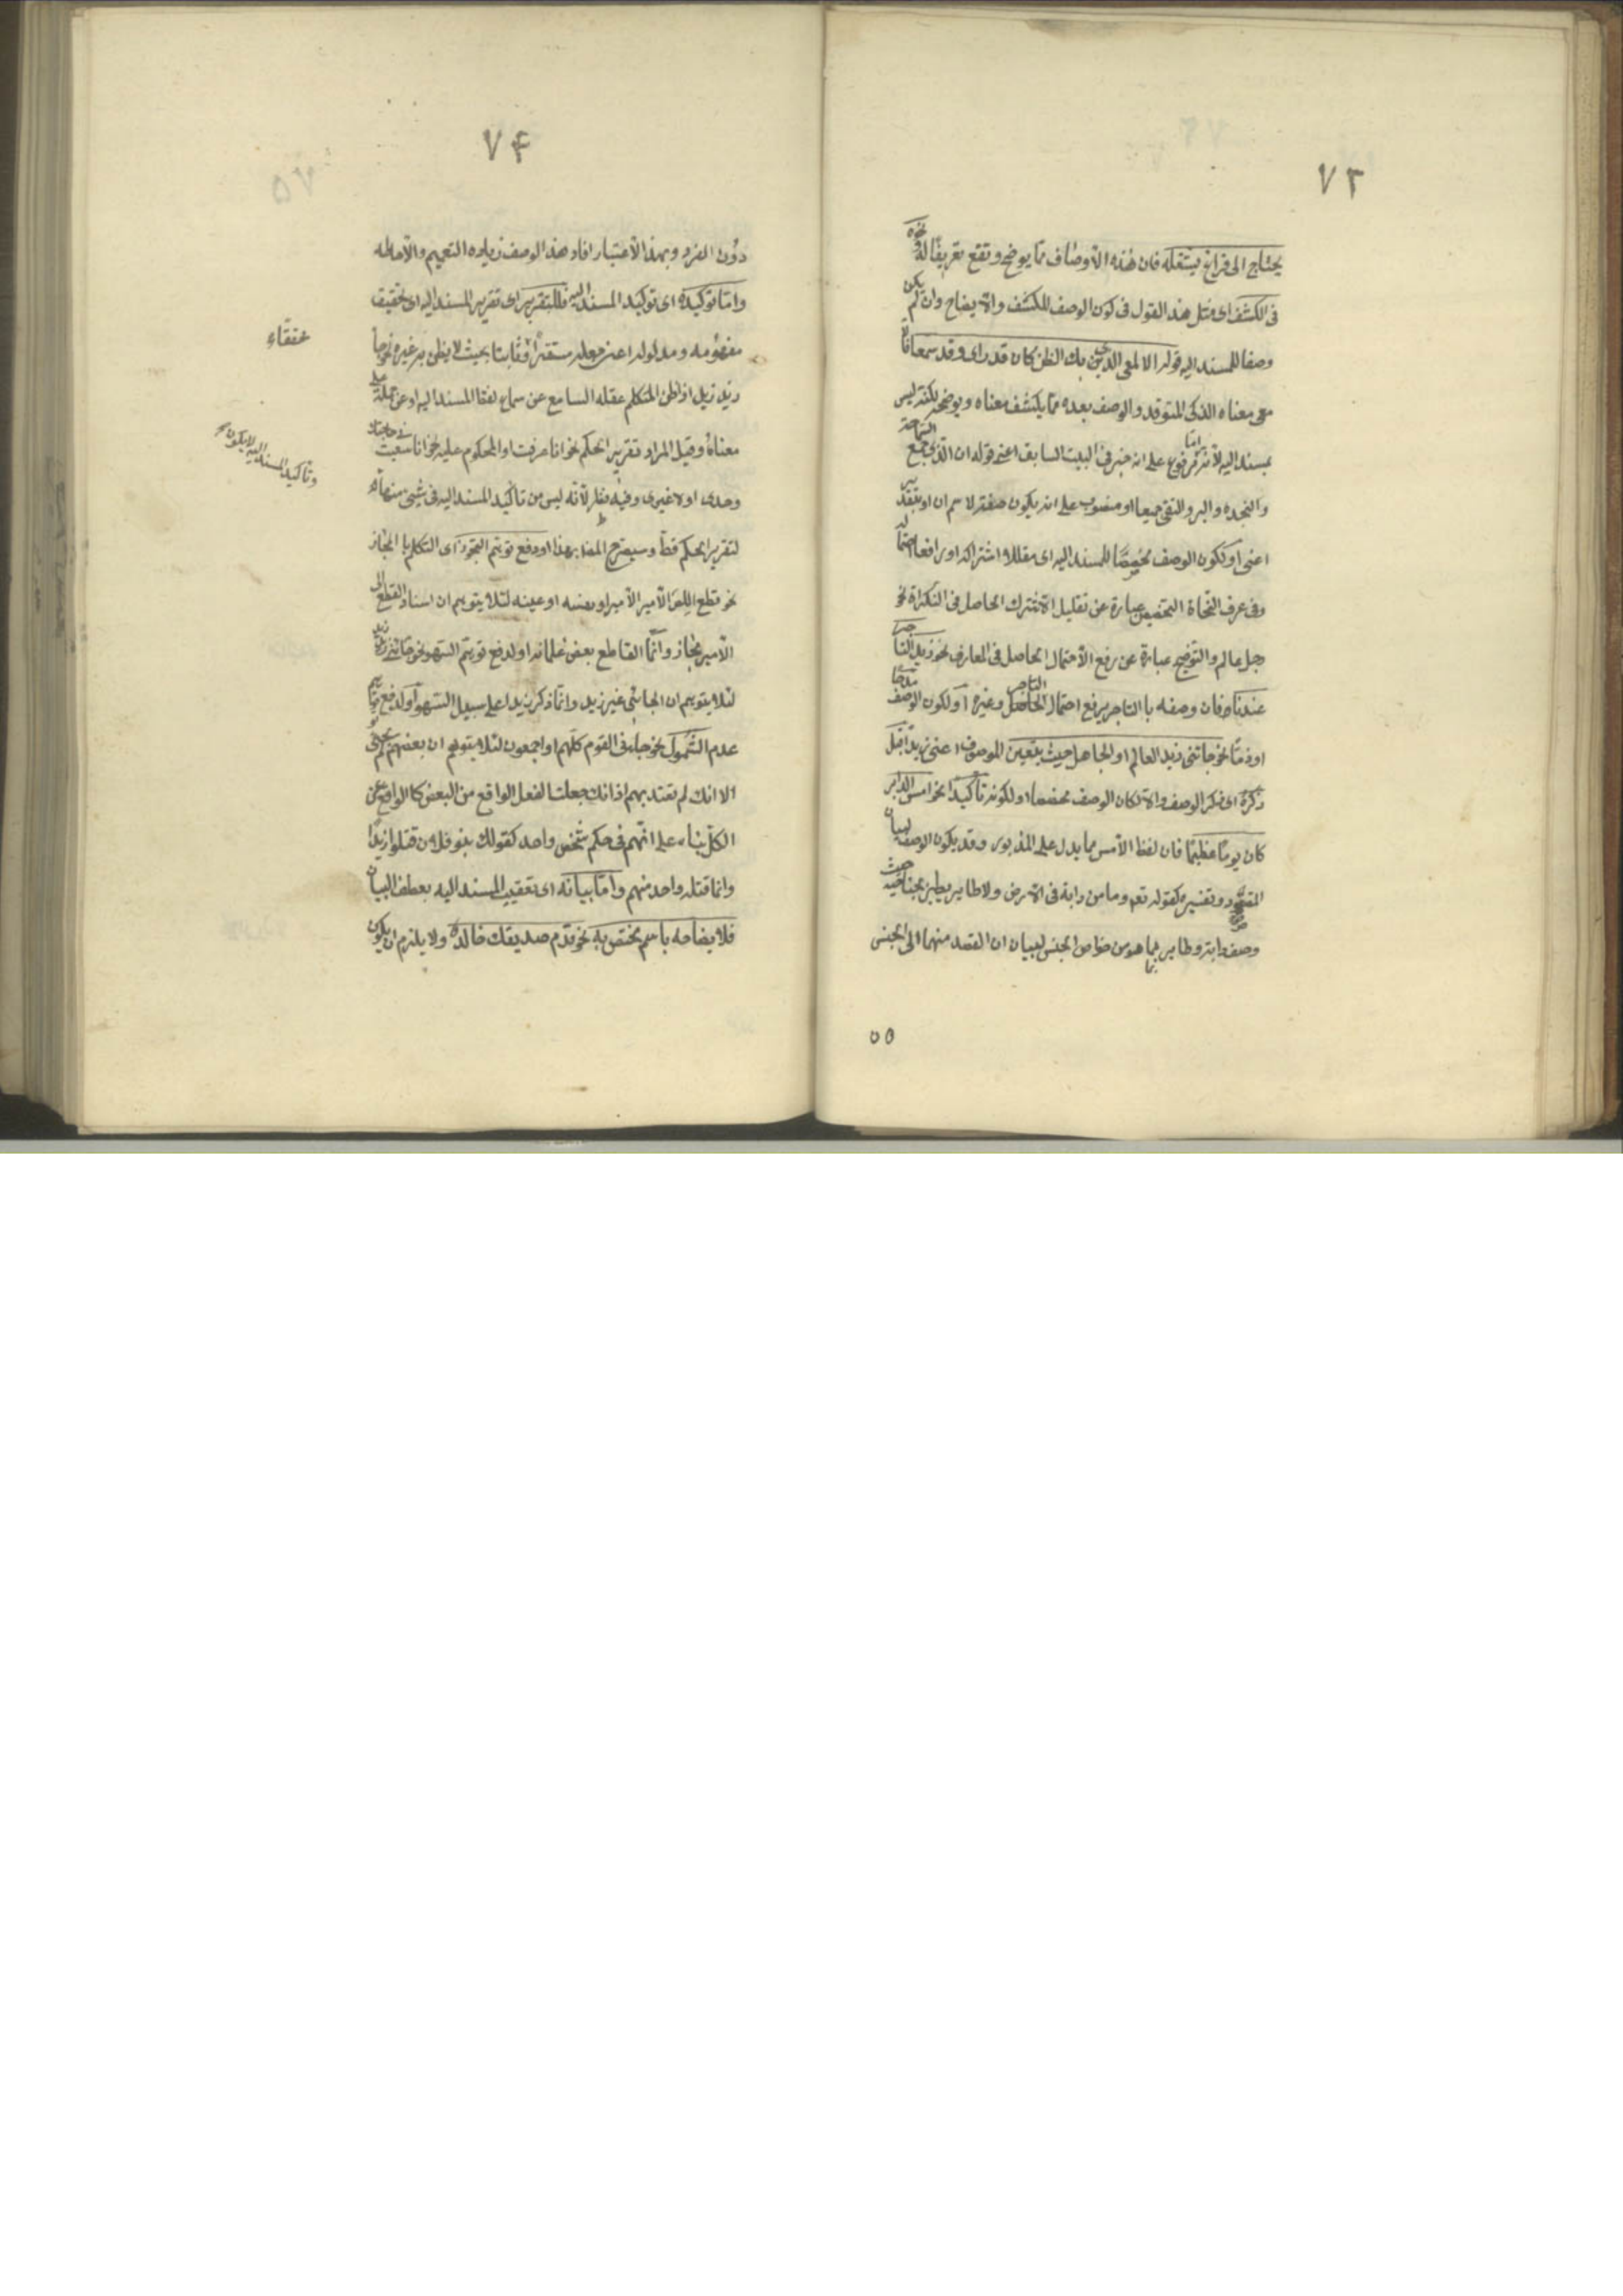 ٧٣
يحتاج الى فراغ يشغله فان هذه الاوصاف مما يوضح وتقع تعريفا له ونحوه
فى الكشف اى مثل هذا القول فى كون الوصف للكشف والايضاح وان لم يكن
وصفا للمسند اليه قوله الالمعى الذى يظن بك الظن كان قد راى وقد سمعا فان
معناه الذكى المتوقد والوصف بعده مما يكشف معناه ويوضحه لكنه ليس
بمسند اليه لانه اما مرفوع على انه خبر ان فى البيت السابق اعنى قوله ان الذى جمع السماحة
والنجده والبر والتقى جميعا او منصوب على انه يكون صفة لاسم ان او بتقدير
اعنى او لكون الوصف مخصصا للمسند اليه اى مقللا اشتراكه او رافعا احتماله
وفى عرف النحاة التخصيص عبارة عن تقليل الاشتراك الحاصل فى النكراة نحو
رجل عالم والتوضيح عبارة عن رفع الاحتمال الحاصل فى المعارف نحو زيد التاجر
عندنا فان وصفه با التاجر يرفع احتمال التاجر وغيره او لكون الوصف مدحا
او ذما نحو جائنى زيد العالم او الجاهل حيث يتعين الموصوف اعنى زيدا قبل
ذكره اى ذكر الوصف والا لكان الوصف مخصصا او لكونه تأكيدا نحو امس الدابر
كان يوما عظيما فان لفظ الامس مما يدل على الدبور وقد يكون الوصف لبيان
المقصود وتفسيره كقوله تعم وما من دابة فى الارض ولا طاير يطير بجناحيه حيث
وصف دابة وطاير بما هو من خواص الجنس لبيان ان القصد منهما الى الجنس
٥٥
٧٤
دون الفرد وبهذا الاعتبار افاد هذا الوصف زيادة التعميم والاحاطه
واما توكيده اى توكيد المسند اليه فللتقرير اى تقرير المسند اليه اى تحقيق
مفهومه ومدلوله اعنى جعله مستقرا وثابتا بحيث لا يظن به غيره نحو جاءنى
زيد زيد اذا ظن المتكلم غفلة السامع عن سماع لفظ المسند اليه او عن حمله على
معناه وقيل المراد تقرير الحكم نحو انا عرفت او المحكوم عليه نحو انا سعيت فى حاجتك
وحدى او لا غيرى وفيه نظر لانه ليس من تأكيد المسند اليه فى شيئ
لتقرير الحكم قط وسيصرح المص بهذا او دفع توهم التجوز اى التكلم با المجاز
نحو قطع اللص الامير الامير او نفسه او عينه لئلا يتوهم ان اسناد القطع الى
الامير مجاز وانما القاطع بعض غلمانه او لدفع توهم السهو نحو جائنى زيد زيد
لئلا يتوهم ان الجائى غير زيد وانما ذكر زيدا على سبيل السهو او لدفع توهم
عدم الشمول نحو جاءنى القوم كلهم او اجمعون لئلا يتوهم ان بعضهم لم يجئ
الا انك لم تعتد بهم اذ انك جعلت الفعل الواقع من البعض كا الواقع عن
الكل بناء على انهم فى حكم شخص واحد كقولك بنو فلان قتلوا زيدا
وانما قتله واحد منهم واما بيانه اى تعقيب المسند اليه بعطف البيان
فلايضاحه باسم مختص به نحو قدم صديقك خالد ولا يلزم ان يكون
وتأكيد المسند اليه لا يكون